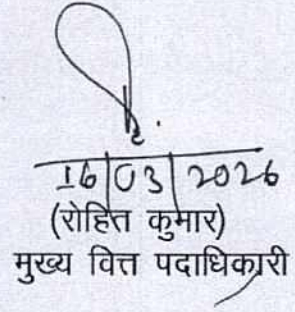 16/03/2026
(रोहित कुमार)
मुख्य वित्त पदाधिकारी